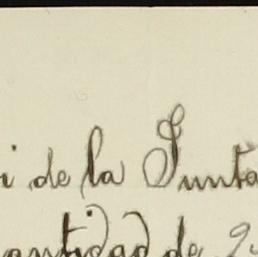 i de la Junta
antidad de